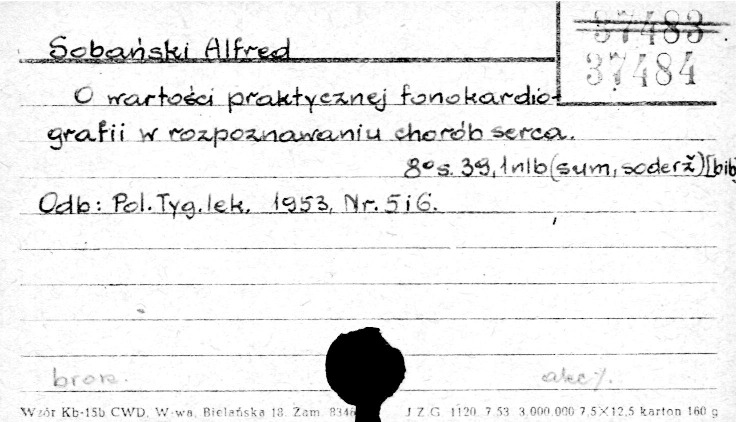 37483
Sobański Alfred
37484
O wartości praktycznej fonokardio-
grafii w rozpoznawaniu chorób serca.
8° s. 39, 1 nlb (sum, soderž) [bib
Odb: Pol. Tyg. lek. 1953, Nr. 5 i 6.
brosz.
Wzór Kb-15b CWD, W-wa, Bielańska 18. Zam. 8346
J.Z.G. 1120 7.53 3.000.000 7,5×12,5 karton 160 g